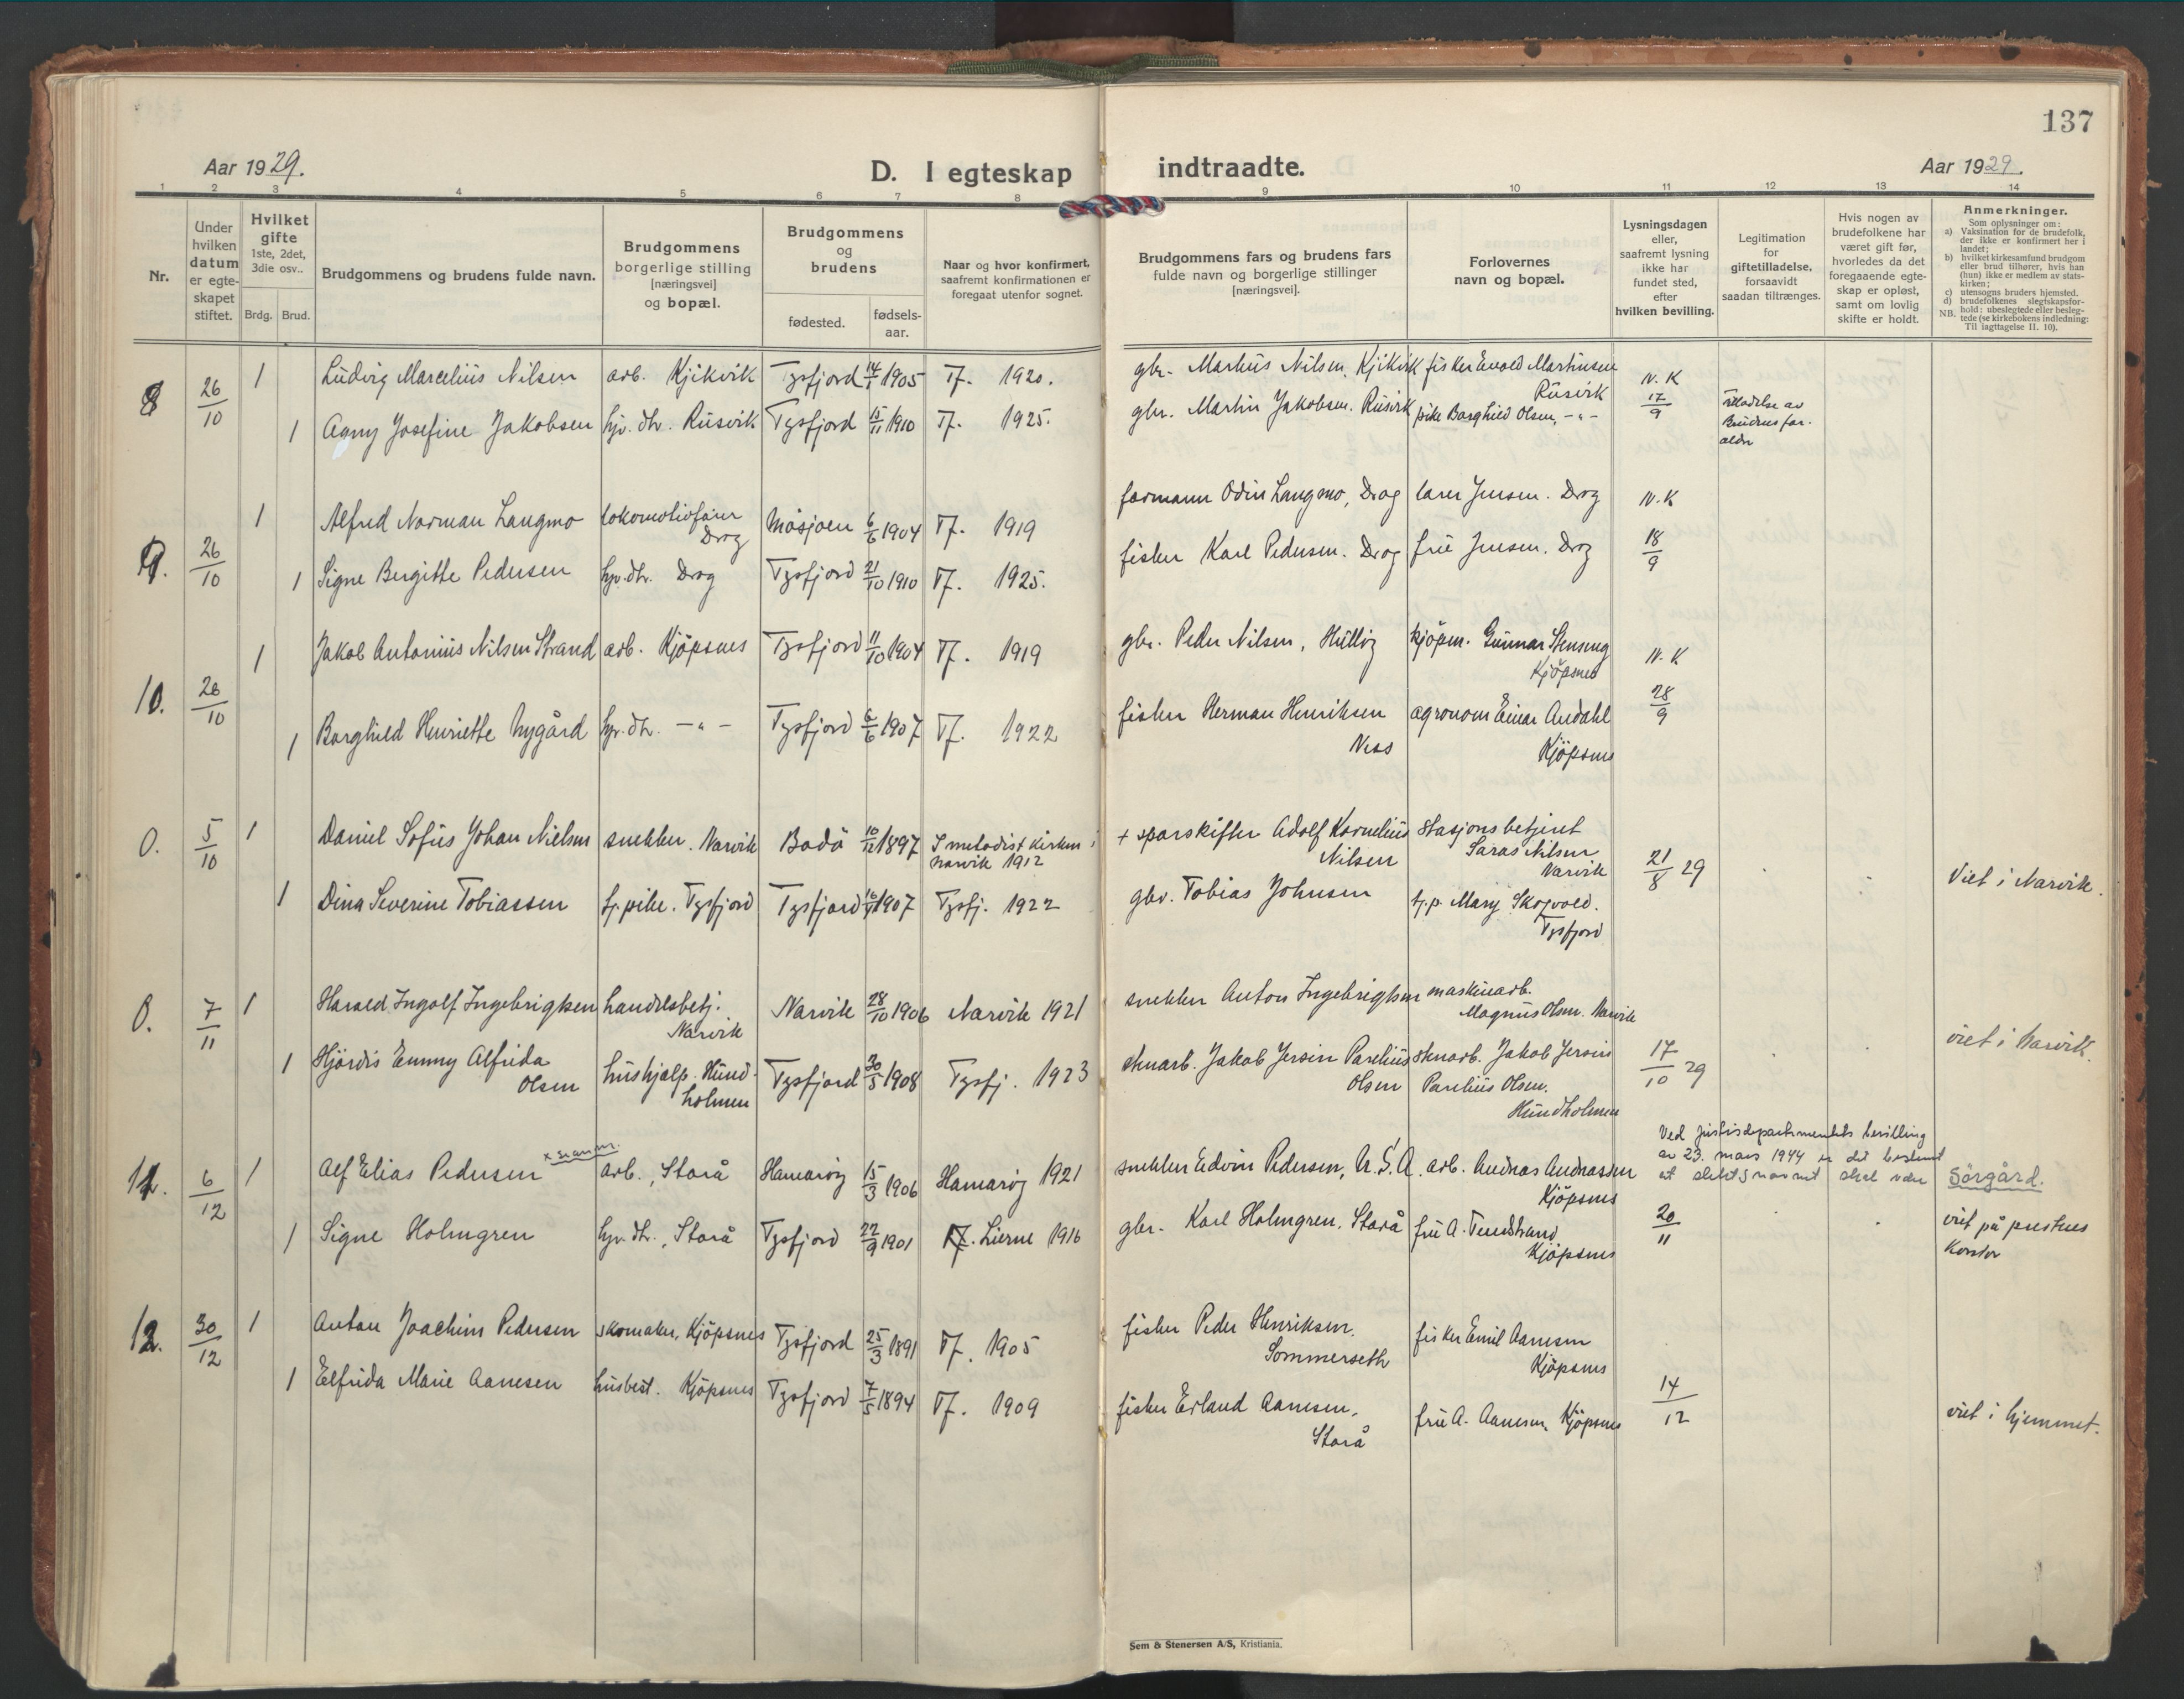 137
Aar 1929.
D. I egteskap indtraadte.
Aar 1929.
1 2 3 4 5 6 7 8 9 10 11 12 13 14
Nr.
Under hvilken datum er egteskapet stiftet.
Hvilket gifte 1ste, 2det, 3die osv..
Brdg. Brud.
Brudgommens og brudens fulde navn.
Brudgommens borgerlige stilling [næringsvei] og bopæl.
Brudgommens og brudens
fødested. fødselsaar.
Naar og hvor konfirmert, saafremt konfirmationen er foregaat utenfor sognet.
Brudgommens fars og brudens fars fulde navn og borgerlige stillinger [næringsvei].
Forlovernes navn og bopæl.
Lysningsdagen eller, saafremt lysning ikke har fundet sted, efter hvilken bevilling.
Legitimation for giftetilladelse, forsaavidt saadan tiltrænges.
Hvis nogen av brudefolkene har været gift før, hvorledes da det foregaaende egteskap er opløst, samt om lovlig skifte er holdt.
Anmerkninger.
Som oplysninger om:
a) Vaksination for de brudefolk, der ikke er konfirmert her i landet;
b) hvilket kirkesamfund brudgom eller brud tilhører, hvis han (hun) ikke er medlem av statskirken;
c) utensogns bruders hjemsted.
d) brudefolkenes slegtskapsforhold: ubeslegtede eller beslegtede (se kirkebokens indledning: NB. Til iagttagelse II. 10).
8 26/10 1 Ludvig Marcelius Nilsen arb. Kjikvik Tysfjord 14/1 1905 Tf. 1920. gbr. Markus Nilsen, Kjikvik fisker Evold Martinsen Rusvik N.K 17/9
1 Agny Josefine Jakobsen hjv. dtr. Rusvik Tysfjord 15/11 1910 Tf. 1925. gbr. Martin Jakobsen. Rusvik pike Borghild Olsen, -"- av Brudens foraldr
9. 26/10 1 Alfred Norman Langmo lokomotivfører Drag Mosjøen 6/6 1904 Tf. 1919 formann Odin Langmo, Drag lærer Jensen. Drag N.K 18/9
1 Signe Bergitte Pedersen hjv. dtr. Drag Tysfjord 21/10 1910 Tf. 1925. fisker Karl Pedersen. Drag frue Jensen. Drag
10. 26/10 1 Jakob Antonius Nilsen Strand arb. Kjöpsnes Tysfjord 11/10 1904 Tf. 1919 gbr. Peder Nilsen, Hulløy kjöpm. Gunnar Stenseng Kjöpsnes N.K 28/9
1 Borghild Henriette Nygård hjv. dtr. -"- Tysfjord 6/6 1907 Tf. 1922 fisker Herman Henriksen Ness agronom Einar Andahl Kjöpsnes
0. 5/10 1 Daniel Sofus Johan Nielsen snekker. Narvik Bodö 10/12 1897 I metodistkirken i Narvik 1912 + sporskifter Adolf Kornelius Nilsen Stasjonsbetjent Saras Nilsen Narvik 21/8 29
1 Dina Severine Tobiassen tj. pike. Tysfjord Tysfjord 1907 Tysfj. 1922 gbr. Tobias Johnsen tj.p. Mary Skogvold. Tysfjord Viet i Narvik.
0. 7/11 1 Harald Ingolf Ingebrigtsen handelsbetj. Narvik Narvik 28/10 1906 Narvik 1921 snekker Anton Ingebrigtsen maskinarb. Magnus Olsen. Narvik
1 Hjördis Emmy Alfrida Olsen hushjelp. Hundholmen Tysfjord 30/5 1908 Tysfj. 1923 stenarb. Jakob Jersin Parelius Olsen stenarb. Jakob Jersin Parelius Olsen. Hundholmen 17/10 29 viet i Narvik.
Ved justisdepartementets bevilling av 23. mars 1944 er det bestemt at slektsnavnet skal være Sörgård.
11. 6/12 1 Alf Elias Pedersen x se anm. arb., Storå Hamarøy 15/3 1906 Hamarøy 1921 snekker Edvin Pedersen, U.S.A. arb. Andreas Andreassen Kjöpsnes
1 Signe Holmgren hjv. dtr., Storå Tysfjord 22/9 1901 Lierne 1916 gbr. Karl Holmgren, Storå frue A. Kjöpsnes 20/11 viet på prestens kontor
12. 30/12 1 Anton Joachim Pedersen skomaker, Kjöpsnes Tysfjord 25/3 1891 Tf. 1905 fisker Peder Henriksen. Sommerseth fisker Emil Aanesen Kjöpsnes
1 Elfrida Marie Aanesen husbest. Kjöpsnes Tysfjord 7/5 1894 Tf. 1909 fisker Erland Aanesen, Storå frue A. Aanesen, Kjöpsnes 14/12 viet i hjemmet.
Sem & Stenersen A/S, Kristiania.